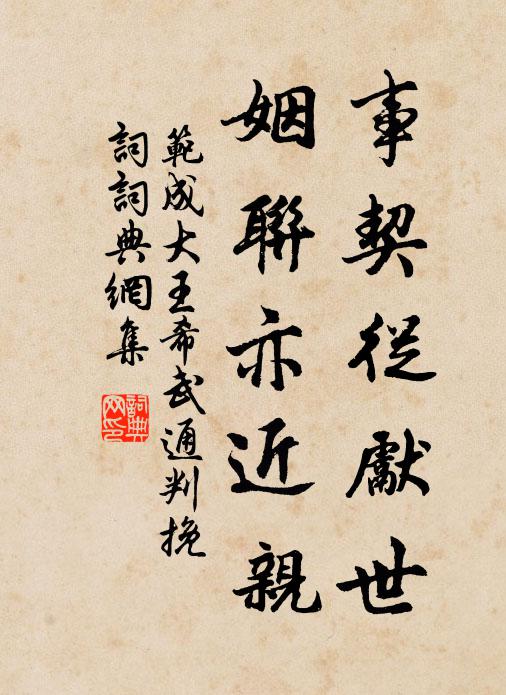 事契從獻世
姻聯亦近親
範成大王希武通判挽
詞詞典網集
詞典
网印